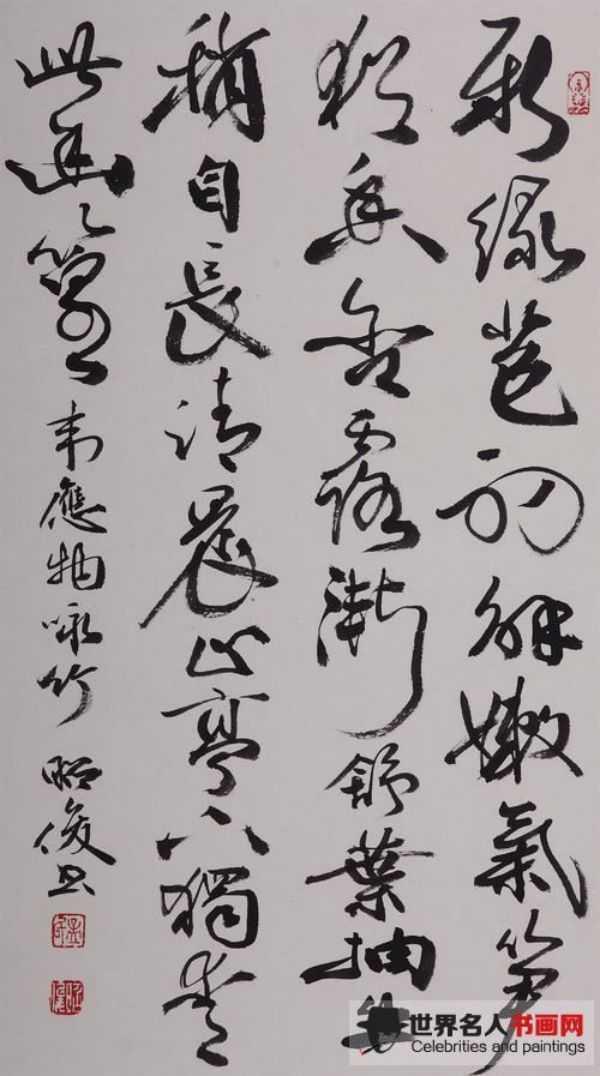 新绿苞初解嫩氣笋
犹香含露渐舒葉抽
稍自長清晨止亭下獨爱
此幽篁
韦應物咏竹 昭俊书
世界名人书画网
Celebrities and paintings